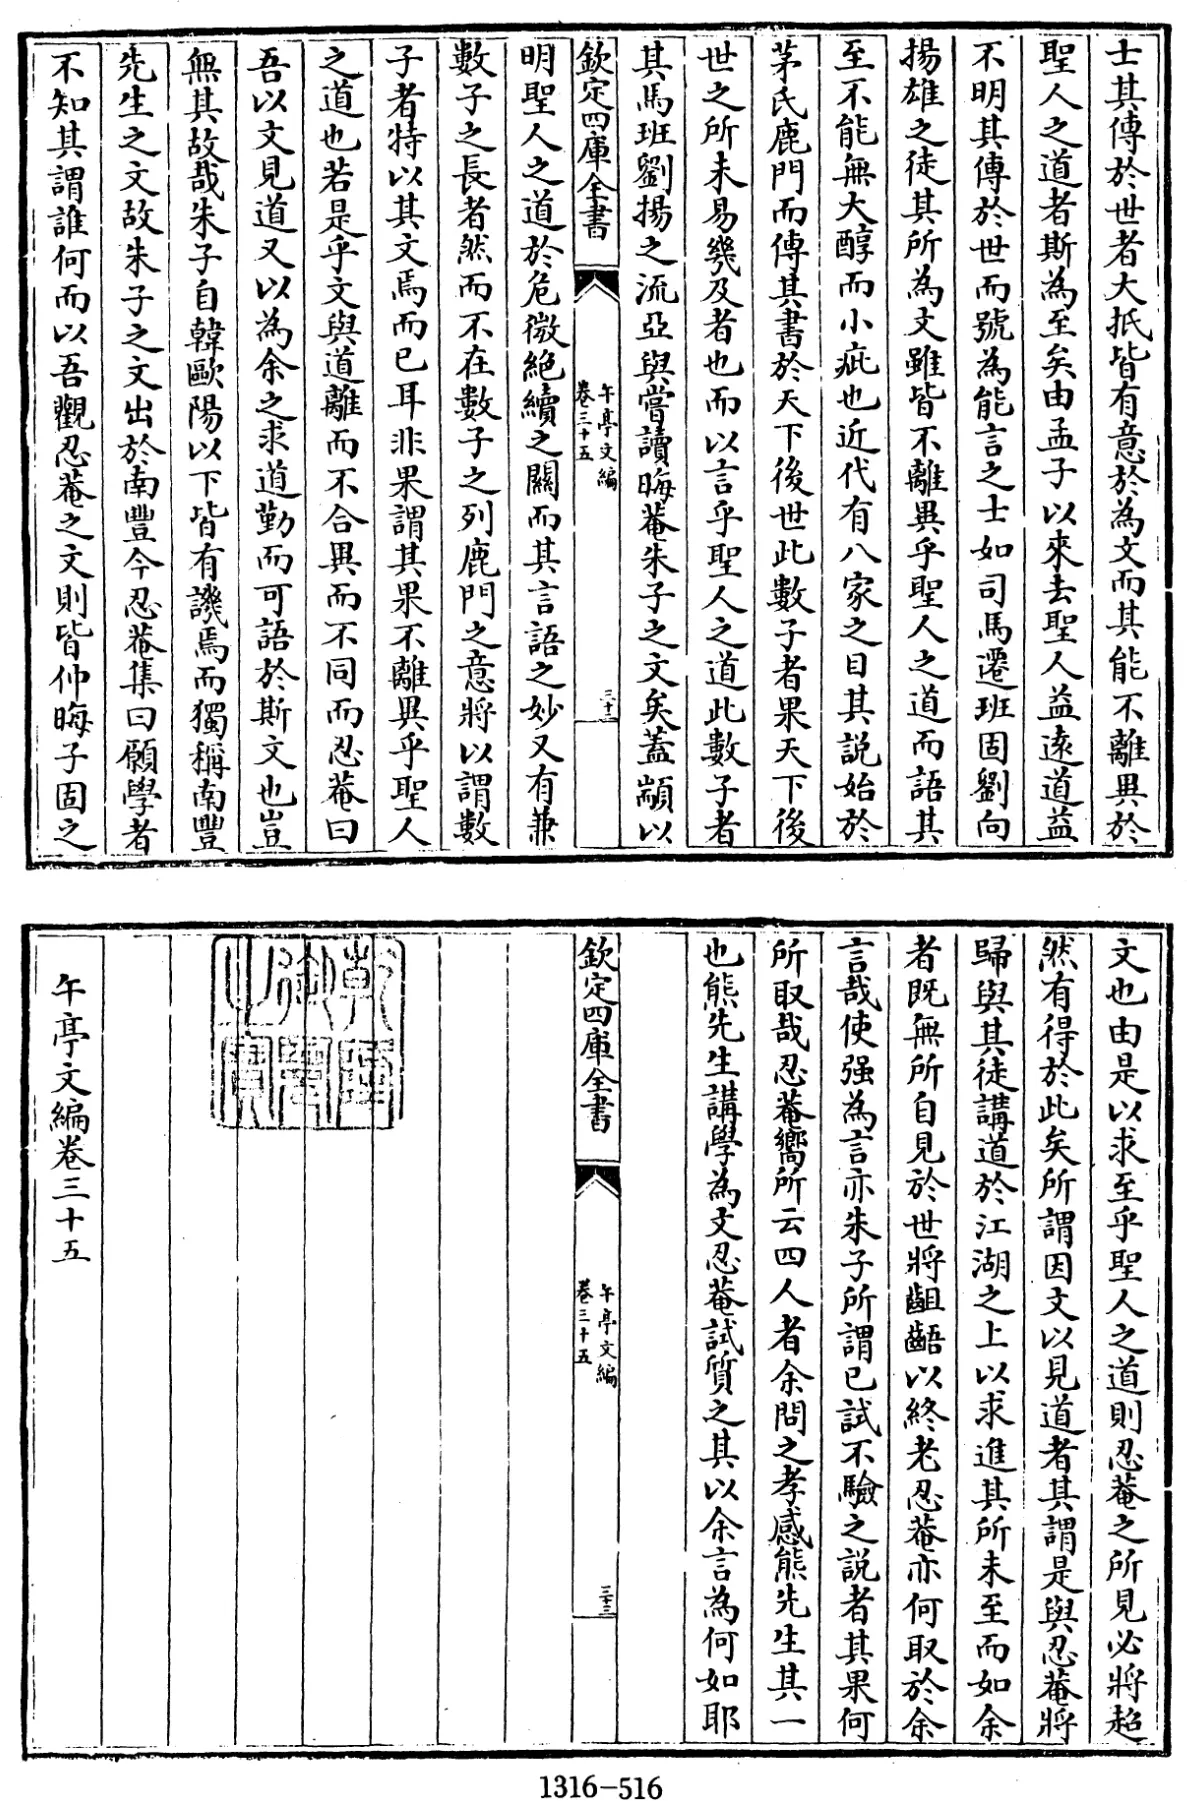 士其傳於世者大抵皆有意於為文而其能不離異於
聖人之道者斯為至矣由孟子以來去聖人益遠道益
不明其傳於世而號為能言之士如司馬遷班固劉向
揚雄之徒其所為文雖皆不離異乎聖人之道而語其
至不能無大醇而小疵也近代有八家之目其説始於
茅氏鹿門而傳其書於天下後世此數子者果天下後
世之所未易幾及者也而以言乎聖人之道此數子者
其馬班劉揚之流亞與嘗讀晦菴朱子之文矣蓋顓以
欽定四庫全書
午亭文編
卷三十五
三十二
明聖人之道於危微絶續之關而其言語之妙又有兼
數子之長者然而不在數子之列鹿門之意將以謂數
子者特以其文焉而已耳非果謂其果不離異乎聖人
之道也若是乎文與道離而不合異而不同而忍菴曰
吾以文見道又以為余之求道勤而可語於斯文也豈
無其故哉朱子自韓歐陽以下皆有譏焉而獨稱南豐
先生之文故朱子之文出於南豐今忍菴集曰願學者
不知其謂誰何而以吾觀忍菴之文則皆仲晦子固之
文也由是以求至乎聖人之道則忍菴之所見必將超
然有得於此矣所謂因文以見道者其謂是與忍菴將
歸與其徒講道於江湖之上以求進其所未至而如余
者既無所自見於世將齟齬以終老忍菴亦何取於余
言哉使强為言亦朱子所謂已試不驗之説者其果何
所取哉忍菴嚮所云四人者余問之孝感熊先生其一
也熊先生講學為文忍菴試質之其以余言為何如耶
欽定四庫全書
午亭文編
卷三十五
三十三
乾隆御覽之寶
午亭文編卷三十五
1316-516